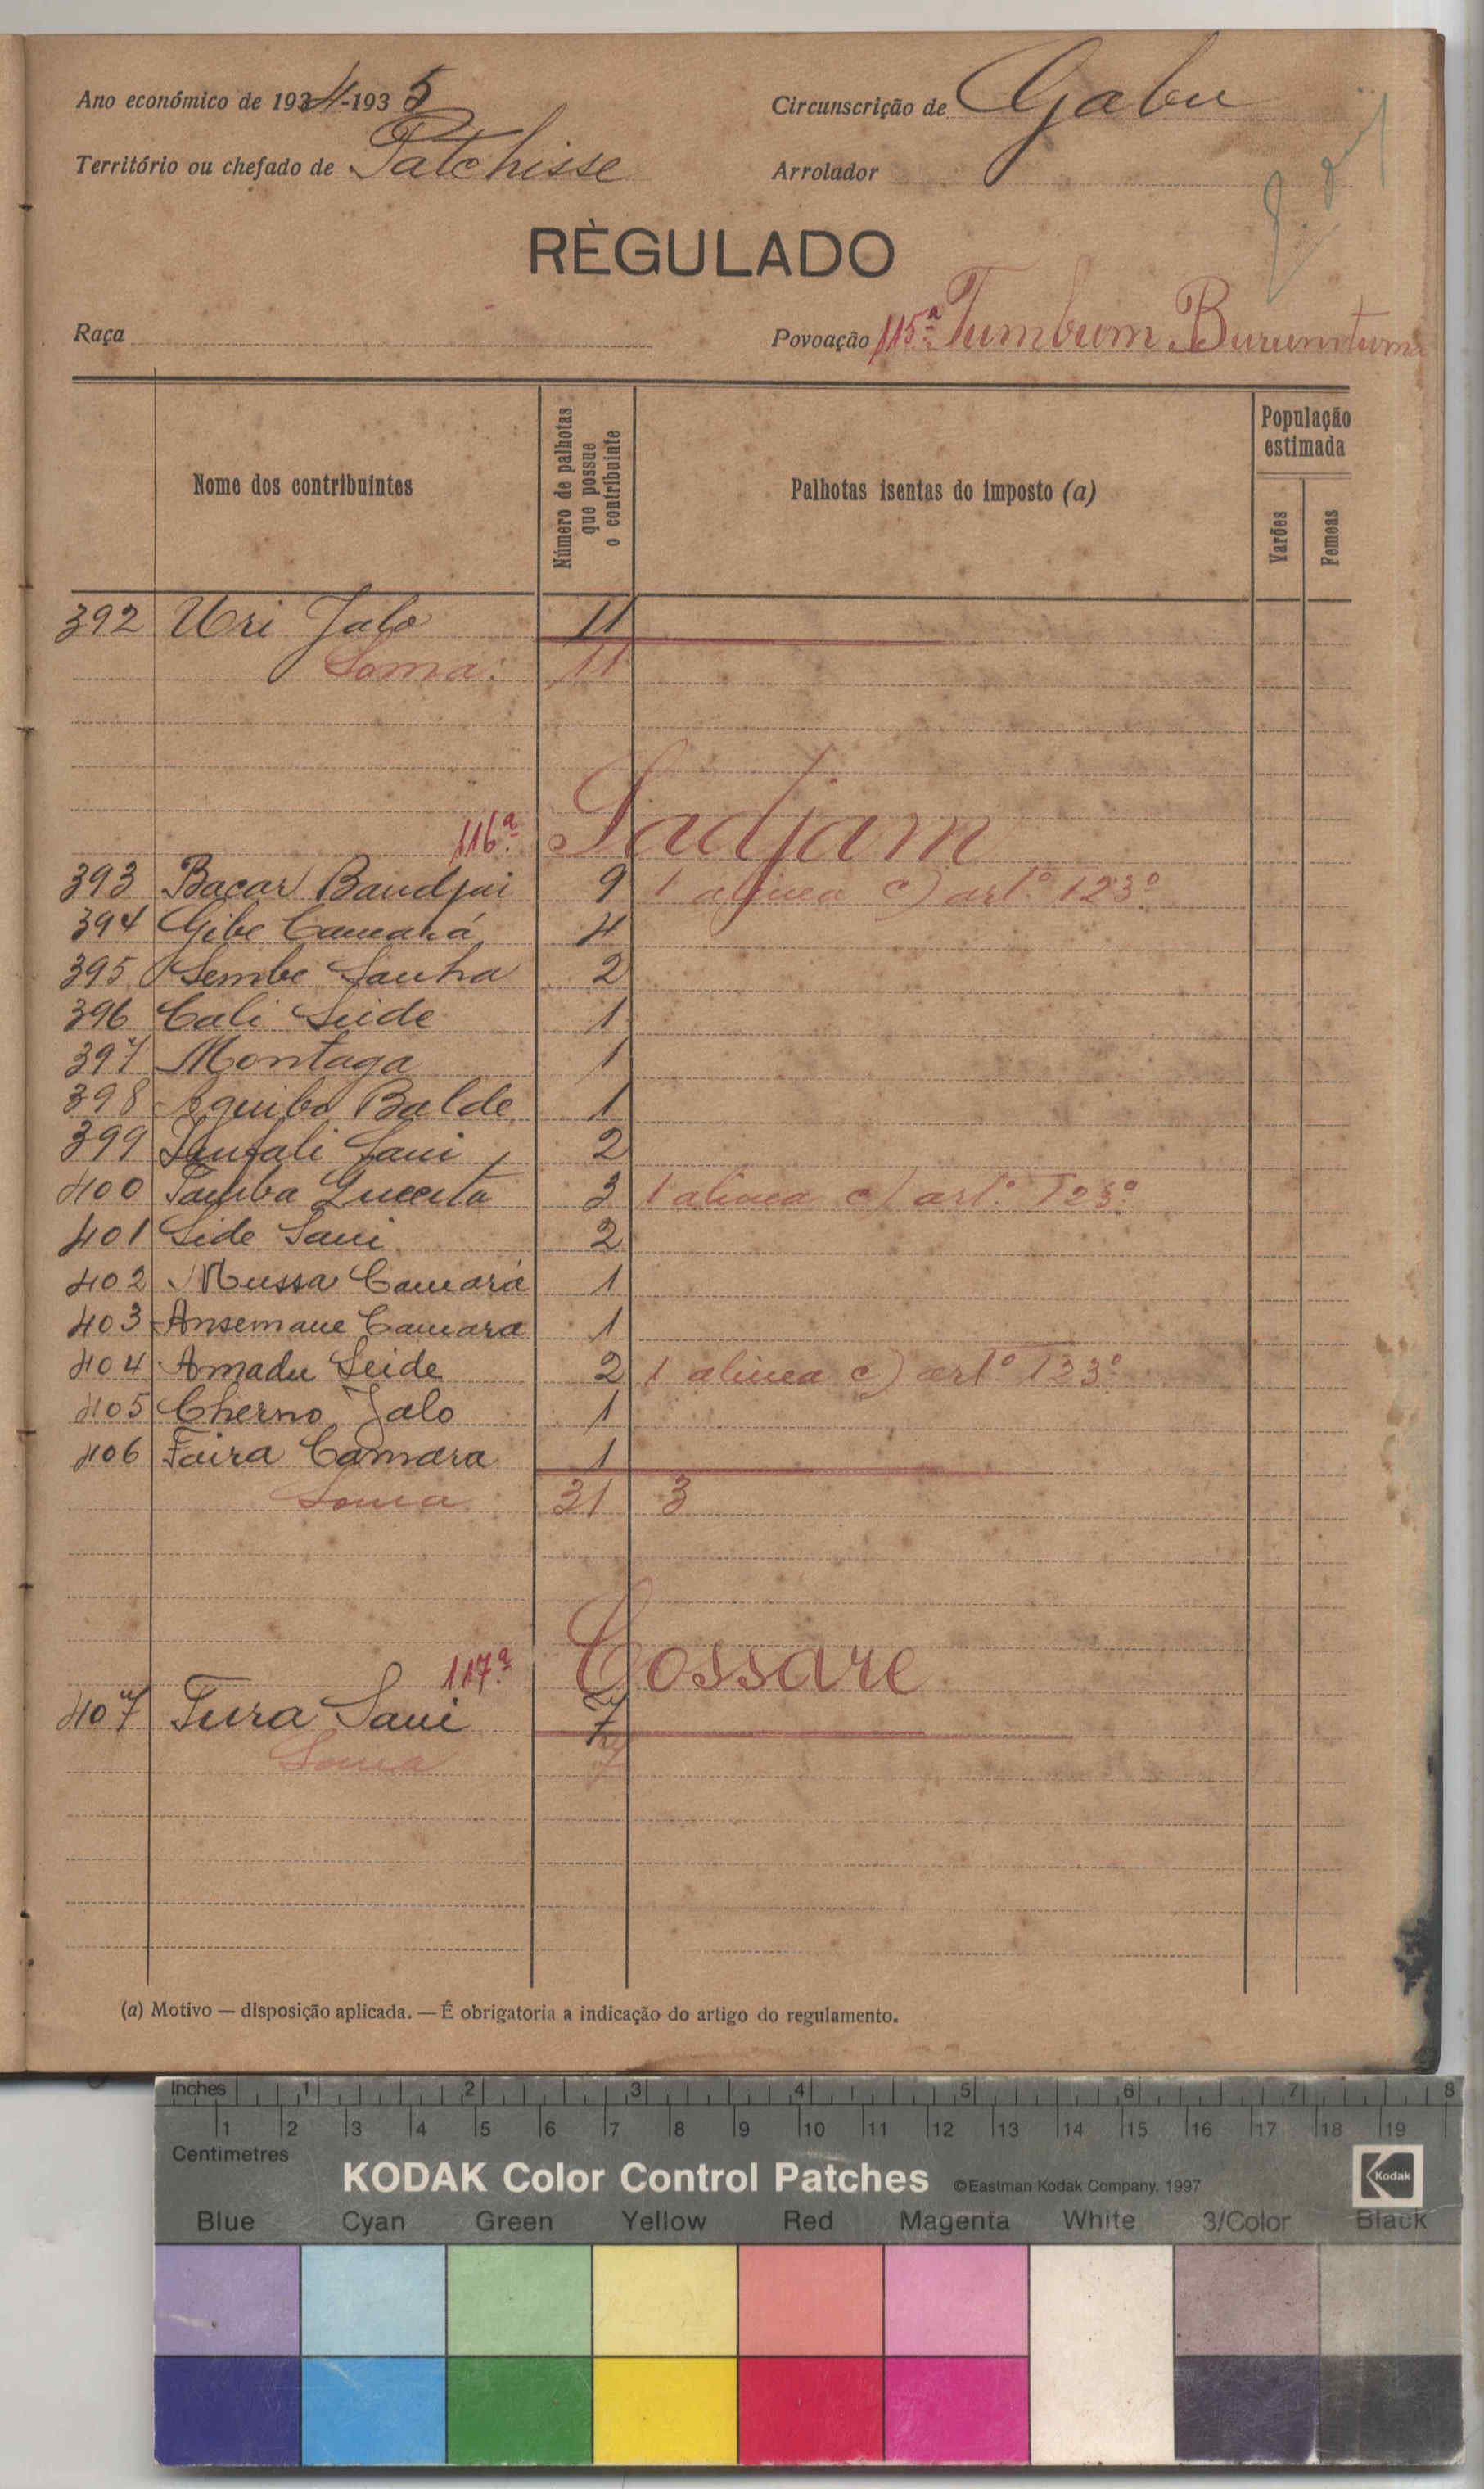 Ano económico de 1934-1935
Circunscrição de Gabu
Território ou chefado de Patchisse
Arrolador
RÈGULADO
Raça
Povoação 115ª Tumbum Buruntuma
Nome dos contribuintes
Número de palhotas que possue o contribuinte
Palhotas isentas do imposto (a)
População estimada
Varões
Femeas
392 Uri Jalo 11
Soma: 11
116ª Sadjam
393 Bacar Bandjai 9 1 alinea c) artº 123º
394 Gibe Camará 4
395 Sembe Sanha 2
396 Cali Seide 1
397 Montaga 1
398 Aguibo Balde 1
399 Saui 2
400 Tamba 3 1 alinea c) artº 123º
401 Side Saui 2
402 Mussa Camará 1
403 Ansemane Camara 1
404 Amadu Seide 2 1 alinea c) artº 123º
405 Cherno Jalo 1
406 Faira Camara 1
Soma 31 3
117ª Cossare
407 Tura Saui 7
Soma 7
(a) Motivo — disposição aplicada. — É obrigatoria a indicação do artigo do regulamento.
Inches 1 2 3 4 5 6 7 8
1 2 3 4 5 6 7 8 9 10 11 12 13 14 15 16 17 18 19
Centimetres
KODAK Color Control Patches ©Eastman Kodak Company, 1997 Kodak
Blue Cyan Green Yellow Red Magenta White 3/Color Black